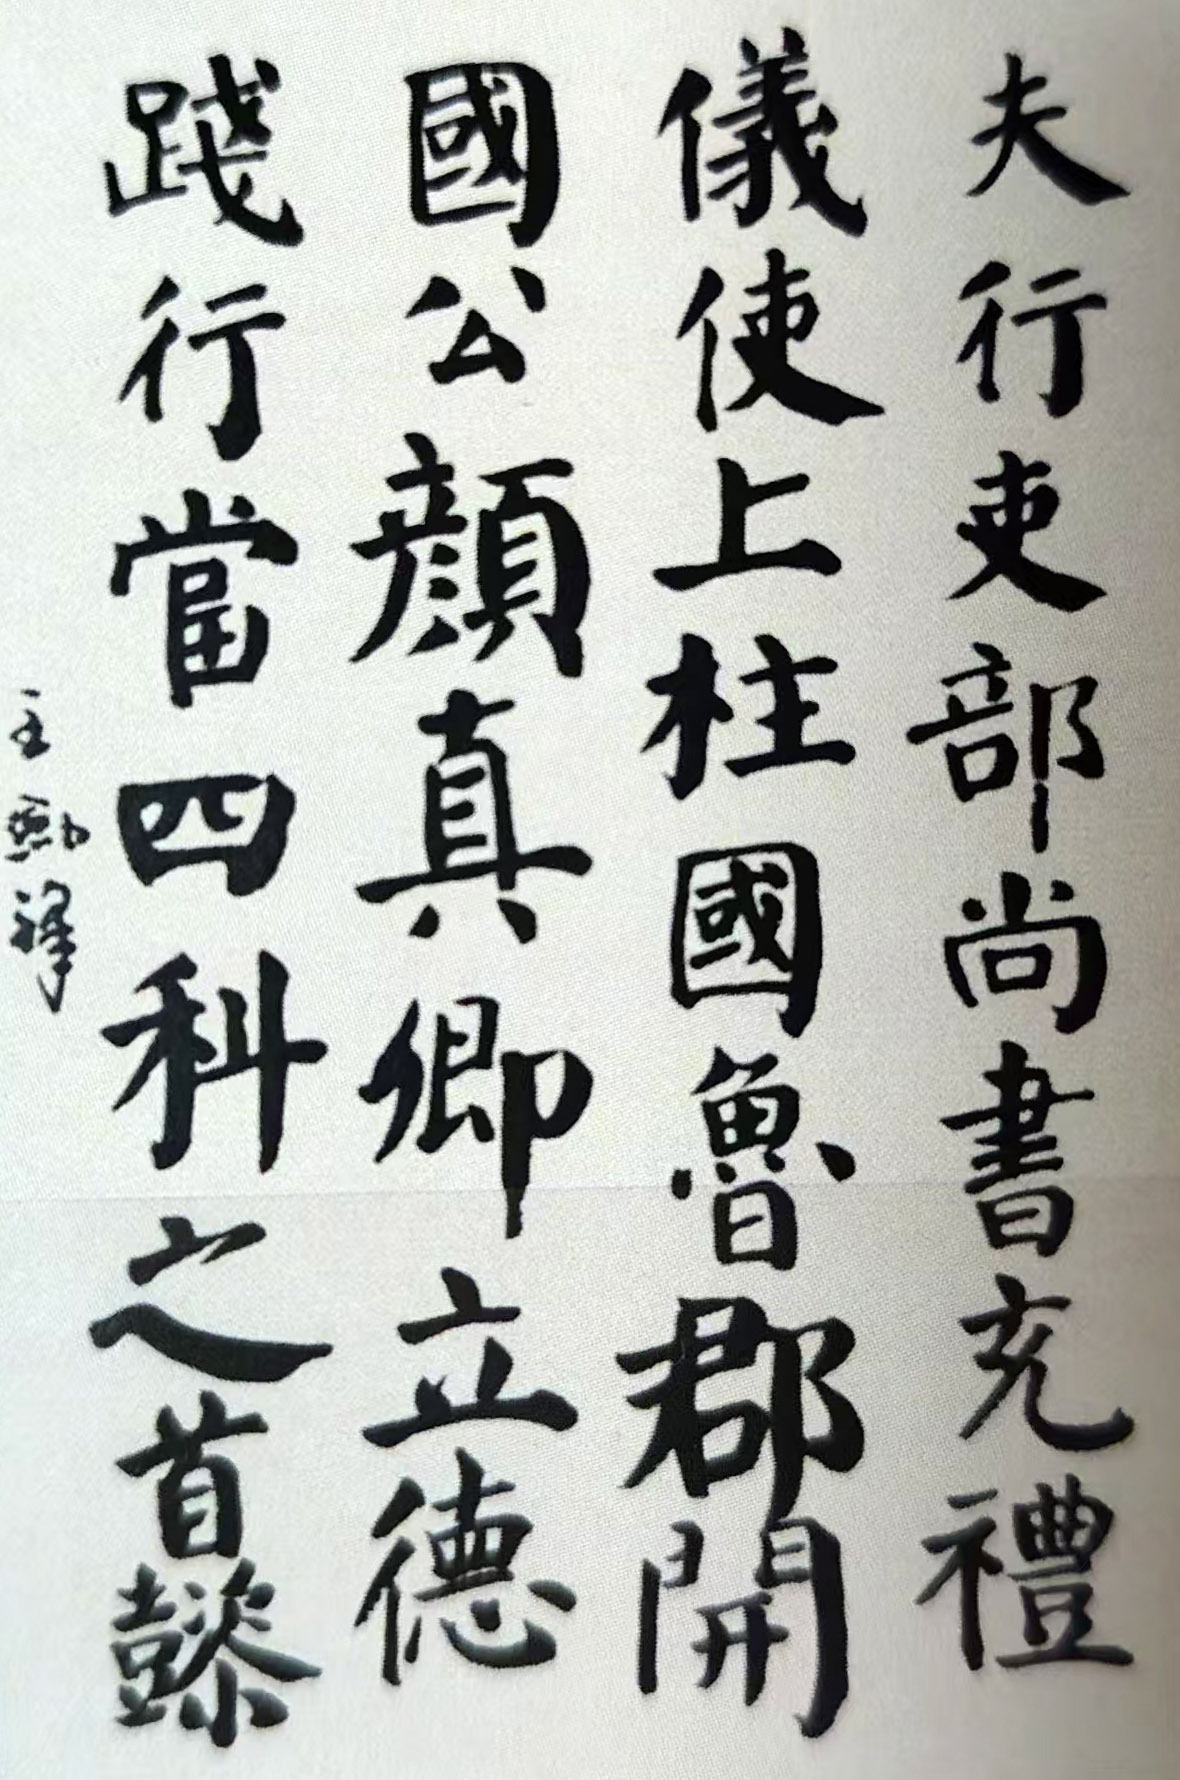 夫行吏部尚書充禮
儀使上柱國魯郡開
國公顏真卿立德
踐行當四科之首懿